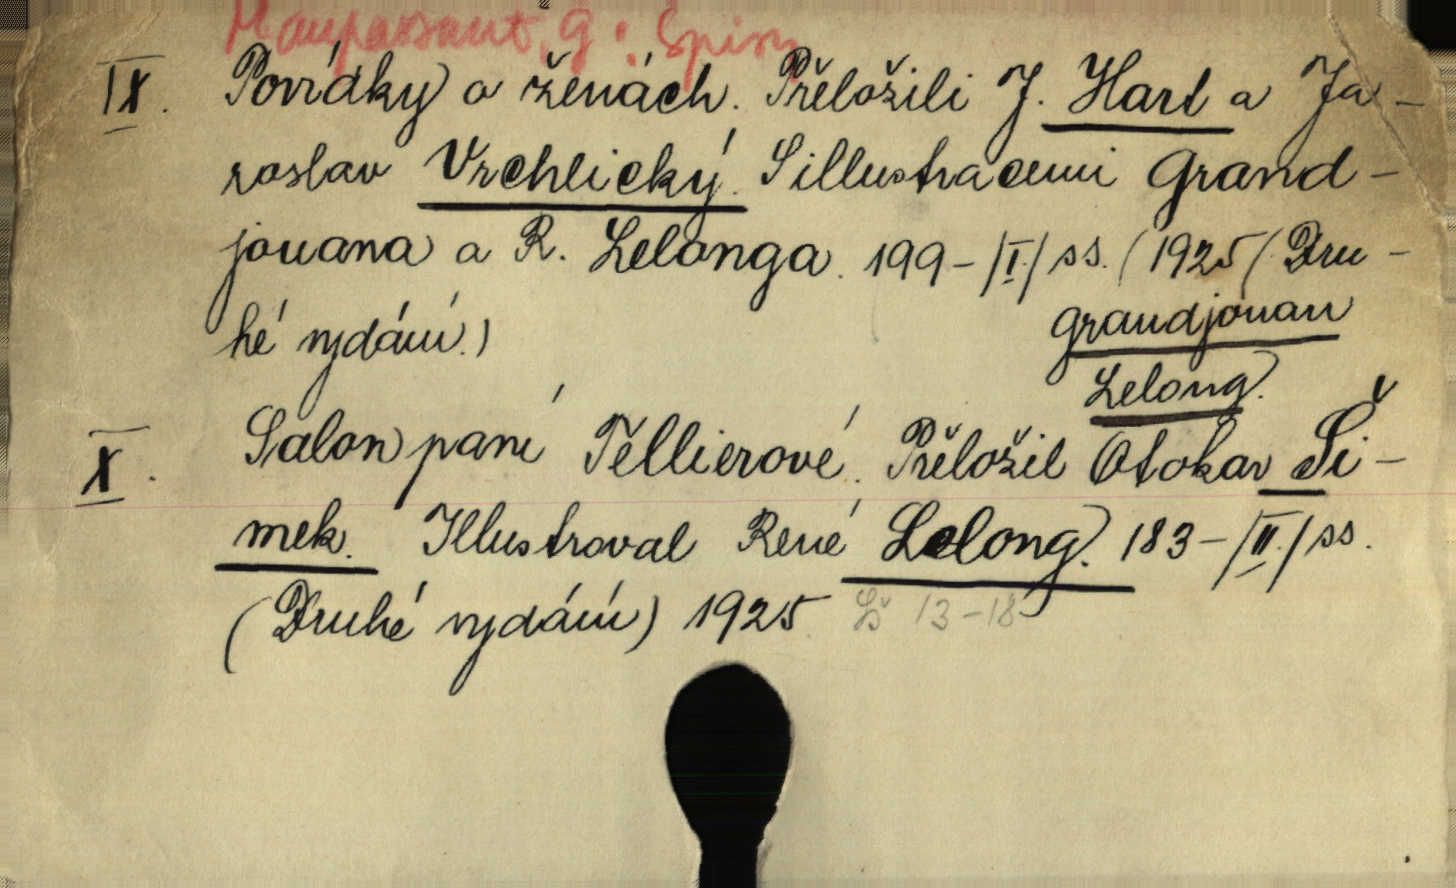 Maupassant, G: Spisy
IX. Povídky o ženách. Přeložili J. Hart a Ja-
roslav Vrchlický. S illustracemi Grand-
jouana a R. Lelonga. 199-/I./ ss. (1925 (Dru-
hé vydání.)
Grandjouan
Lelong.
X. Salon paní Tellierové. Přeložil Otokar Ši-
mek. Illustroval René Lelong. 183-/II./ ss.
(Druhé vydání) 1925 13-18